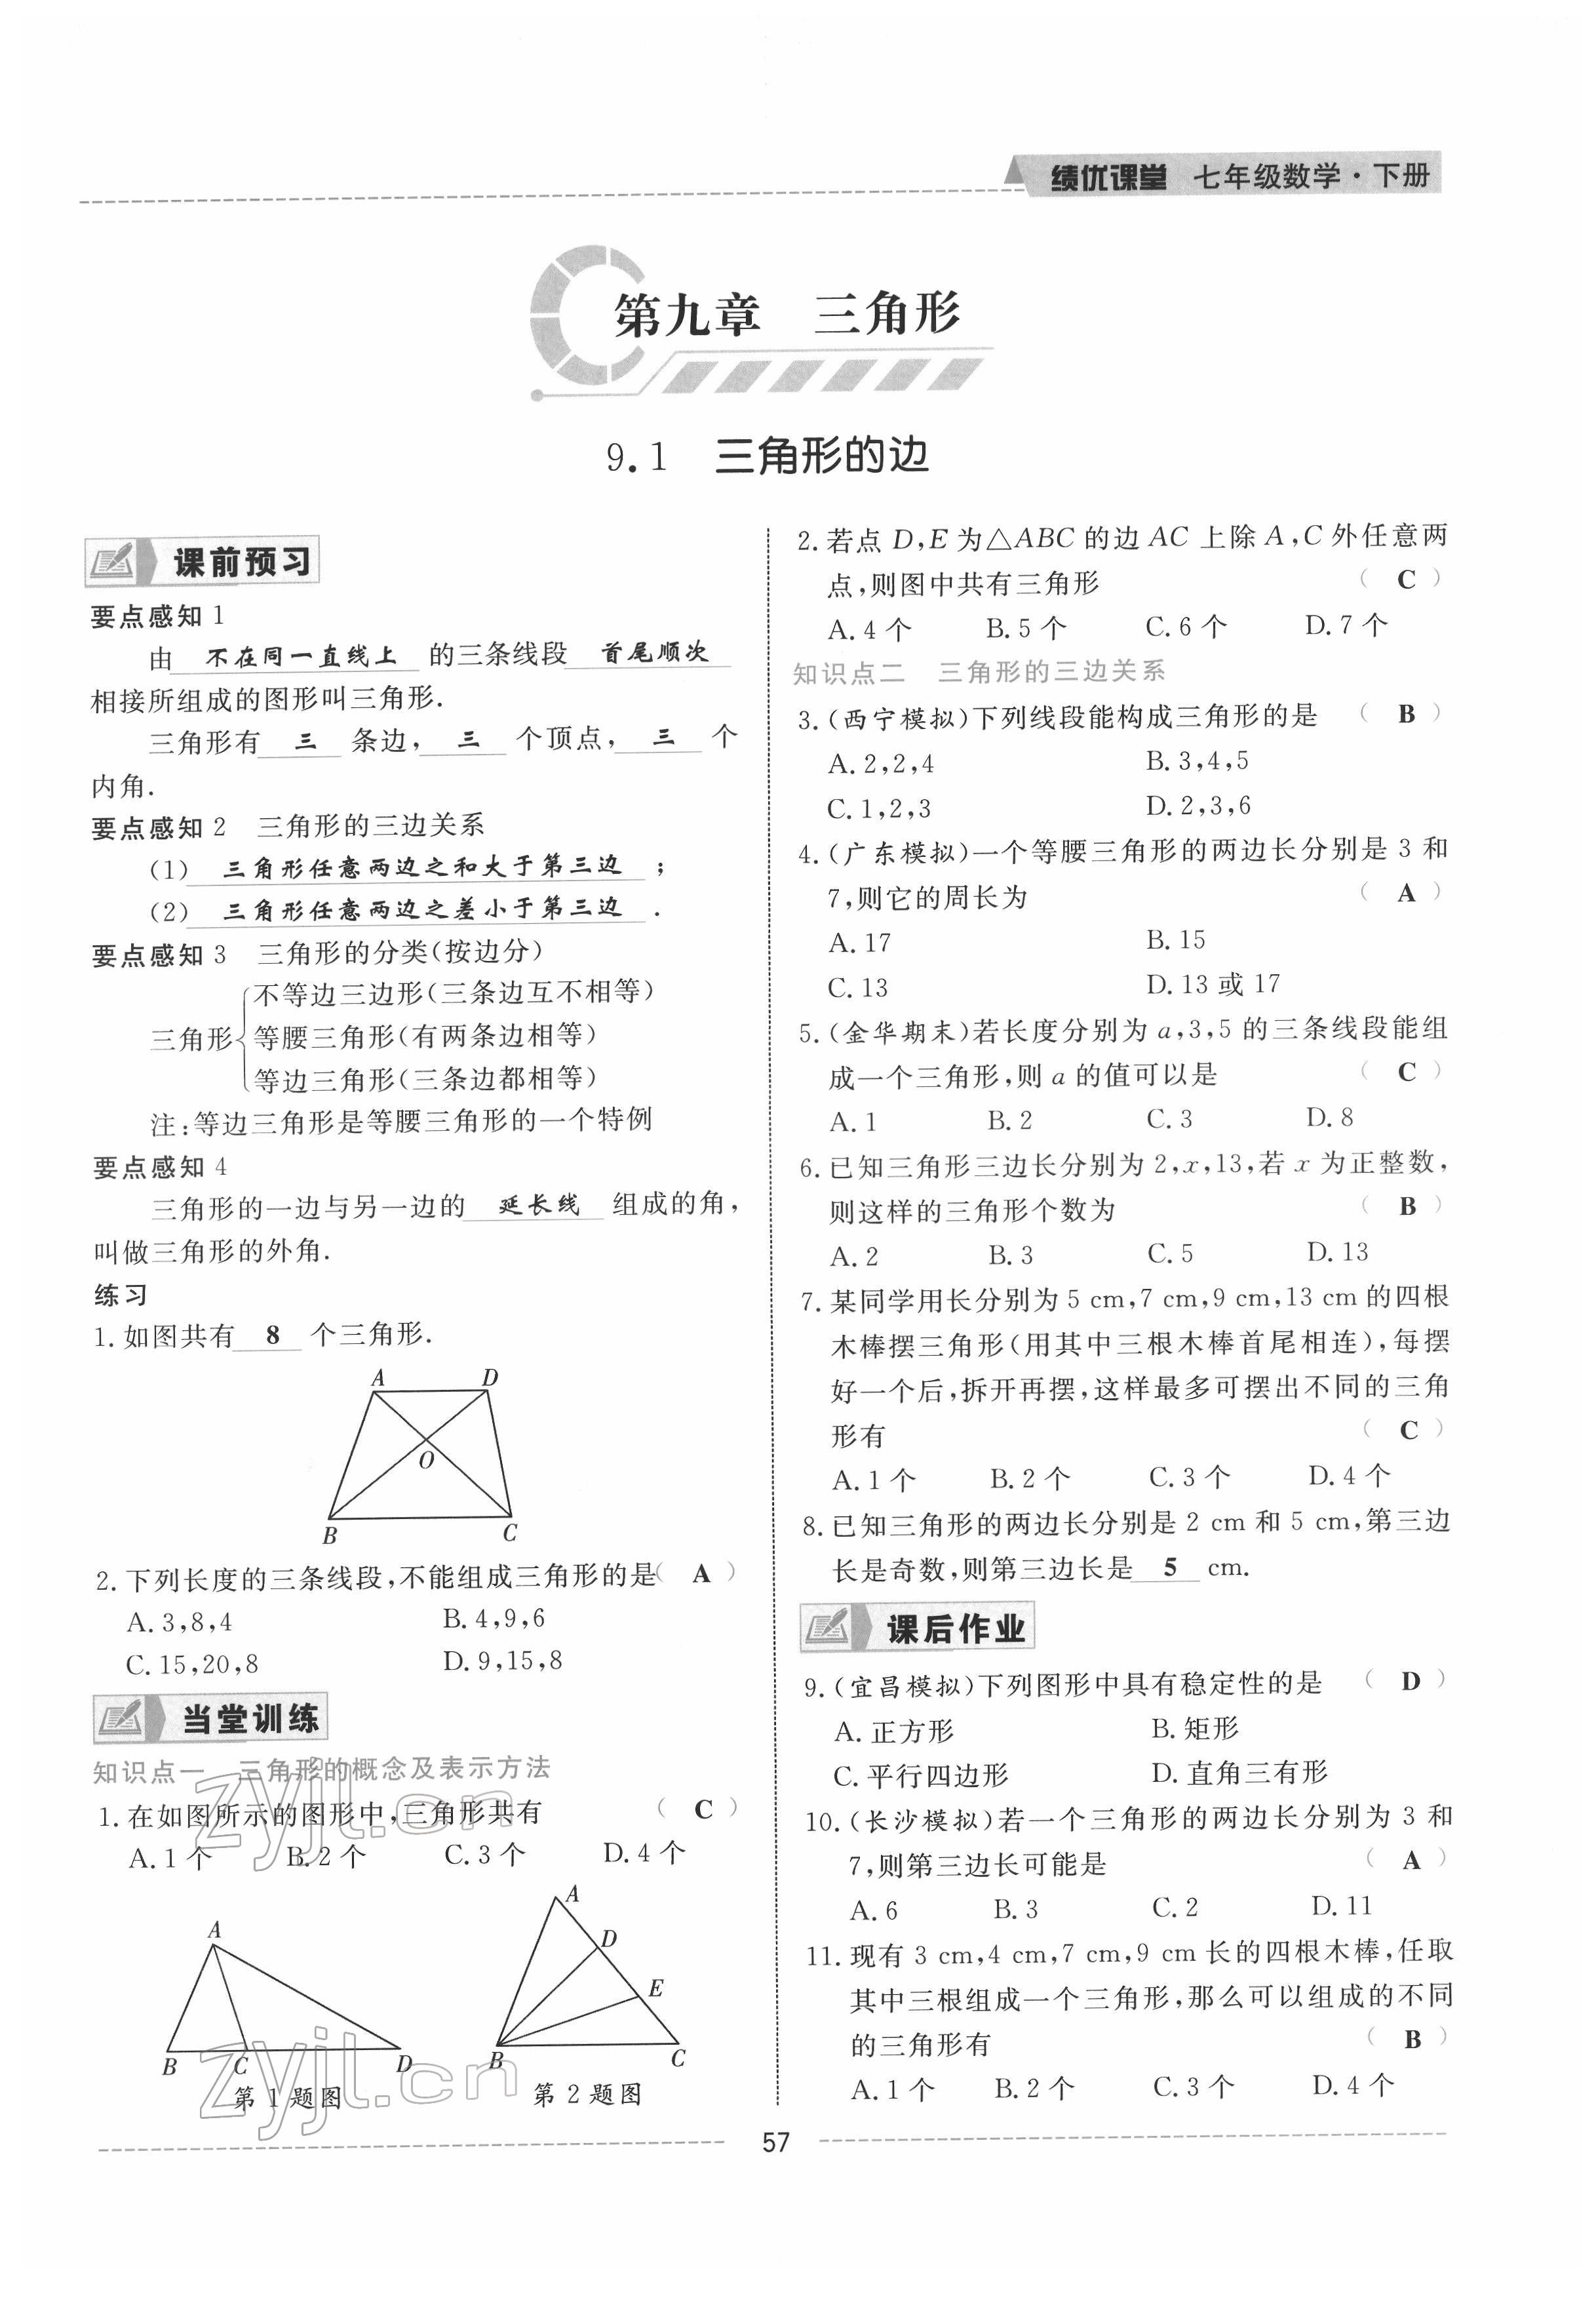 绩优课堂 七年级数学·下册
第九章 三角形
9.1 三角形的边
课前预习
要点感知 1
由 不在同一直线上 的三条线段 首尾顺次
相接所组成的图形叫三角形.
三角形有 三 条边, 三 个顶点, 三 个
内角.
要点感知 2 三角形的三边关系
(1) 三角形任意两边之和大于第三边 ;
(2) 三角形任意两边之差小于第三边 .
要点感知 3 三角形的分类(按边分)
不等边三边形(三条边互不相等)
三角形 等腰三角形(有两条边相等)
等边三角形(三条边都相等)
注:等边三角形是等腰三角形的一个特例
要点感知 4
三角形的一边与另一边的 延长线 组成的角,
叫做三角形的外角.
练习
1. 如图共有 8 个三角形.
A D
O
B C
2. 下列长度的三条线段,不能组成三角形的是( A )
A. 3,8,4 B. 4,9,6
C. 15,20,8 D. 9,15,8
当堂训练
知识点一 三角形的概念及表示方法
1. 在如图所示的图形中,三角形共有 ( C )
A. 1 个 B. 2 个 C. 3 个 D. 4 个
A
B C D
第 1 题图
A
D
E
B C
第 2 题图
2. 若点 D,E 为△ABC 的边 AC 上除 A,C 外任意两
点,则图中共有三角形 ( C )
A. 4 个 B. 5 个 C. 6 个 D. 7 个
知识点二 三角形的三边关系
3. (西宁模拟)下列线段能构成三角形的是 ( B )
A. 2,2,4 B. 3,4,5
C. 1,2,3 D. 2,3,6
4. (广东模拟)一个等腰三角形的两边长分别是 3 和
7,则它的周长为 ( A )
A. 17 B. 15
C. 13 D. 13 或 17
5. (金华期末)若长度分别为 a,3,5 的三条线段能组
成一个三角形,则 a 的值可以是 ( C )
A. 1 B. 2 C. 3 D. 8
6. 已知三角形三边长分别为 2,x,13,若 x 为正整数,
则这样的三角形个数为 ( B )
A. 2 B. 3 C. 5 D. 13
7. 某同学用长分别为 5 cm,7 cm,9 cm,13 cm 的四根
木棒摆三角形(用其中三根木棒首尾相连),每摆
好一个后,拆开再摆,这样最多可摆出不同的三角
形有 ( C )
A. 1 个 B. 2 个 C. 3 个 D. 4 个
8. 已知三角形的两边长分别是 2 cm 和 5 cm,第三边
长是奇数,则第三边长是 5 cm.
课后作业
9. (宜昌模拟)下列图形中具有稳定性的是 ( D )
A. 正方形 B. 矩形
C. 平行四边形 D. 直角三有形
10. (长沙模拟)若一个三角形的两边长分别为 3 和
7,则第三边长可能是 ( A )
A. 6 B. 3 C. 2 D. 11
11. 现有 3 cm,4 cm,7 cm,9 cm 长的四根木棒,任取
其中三根组成一个三角形,那么可以组成的不同
的三角形有 ( B )
A. 1 个 B. 2 个 C. 3 个 D. 4 个
57
zyjl.cn
zyjl.cn